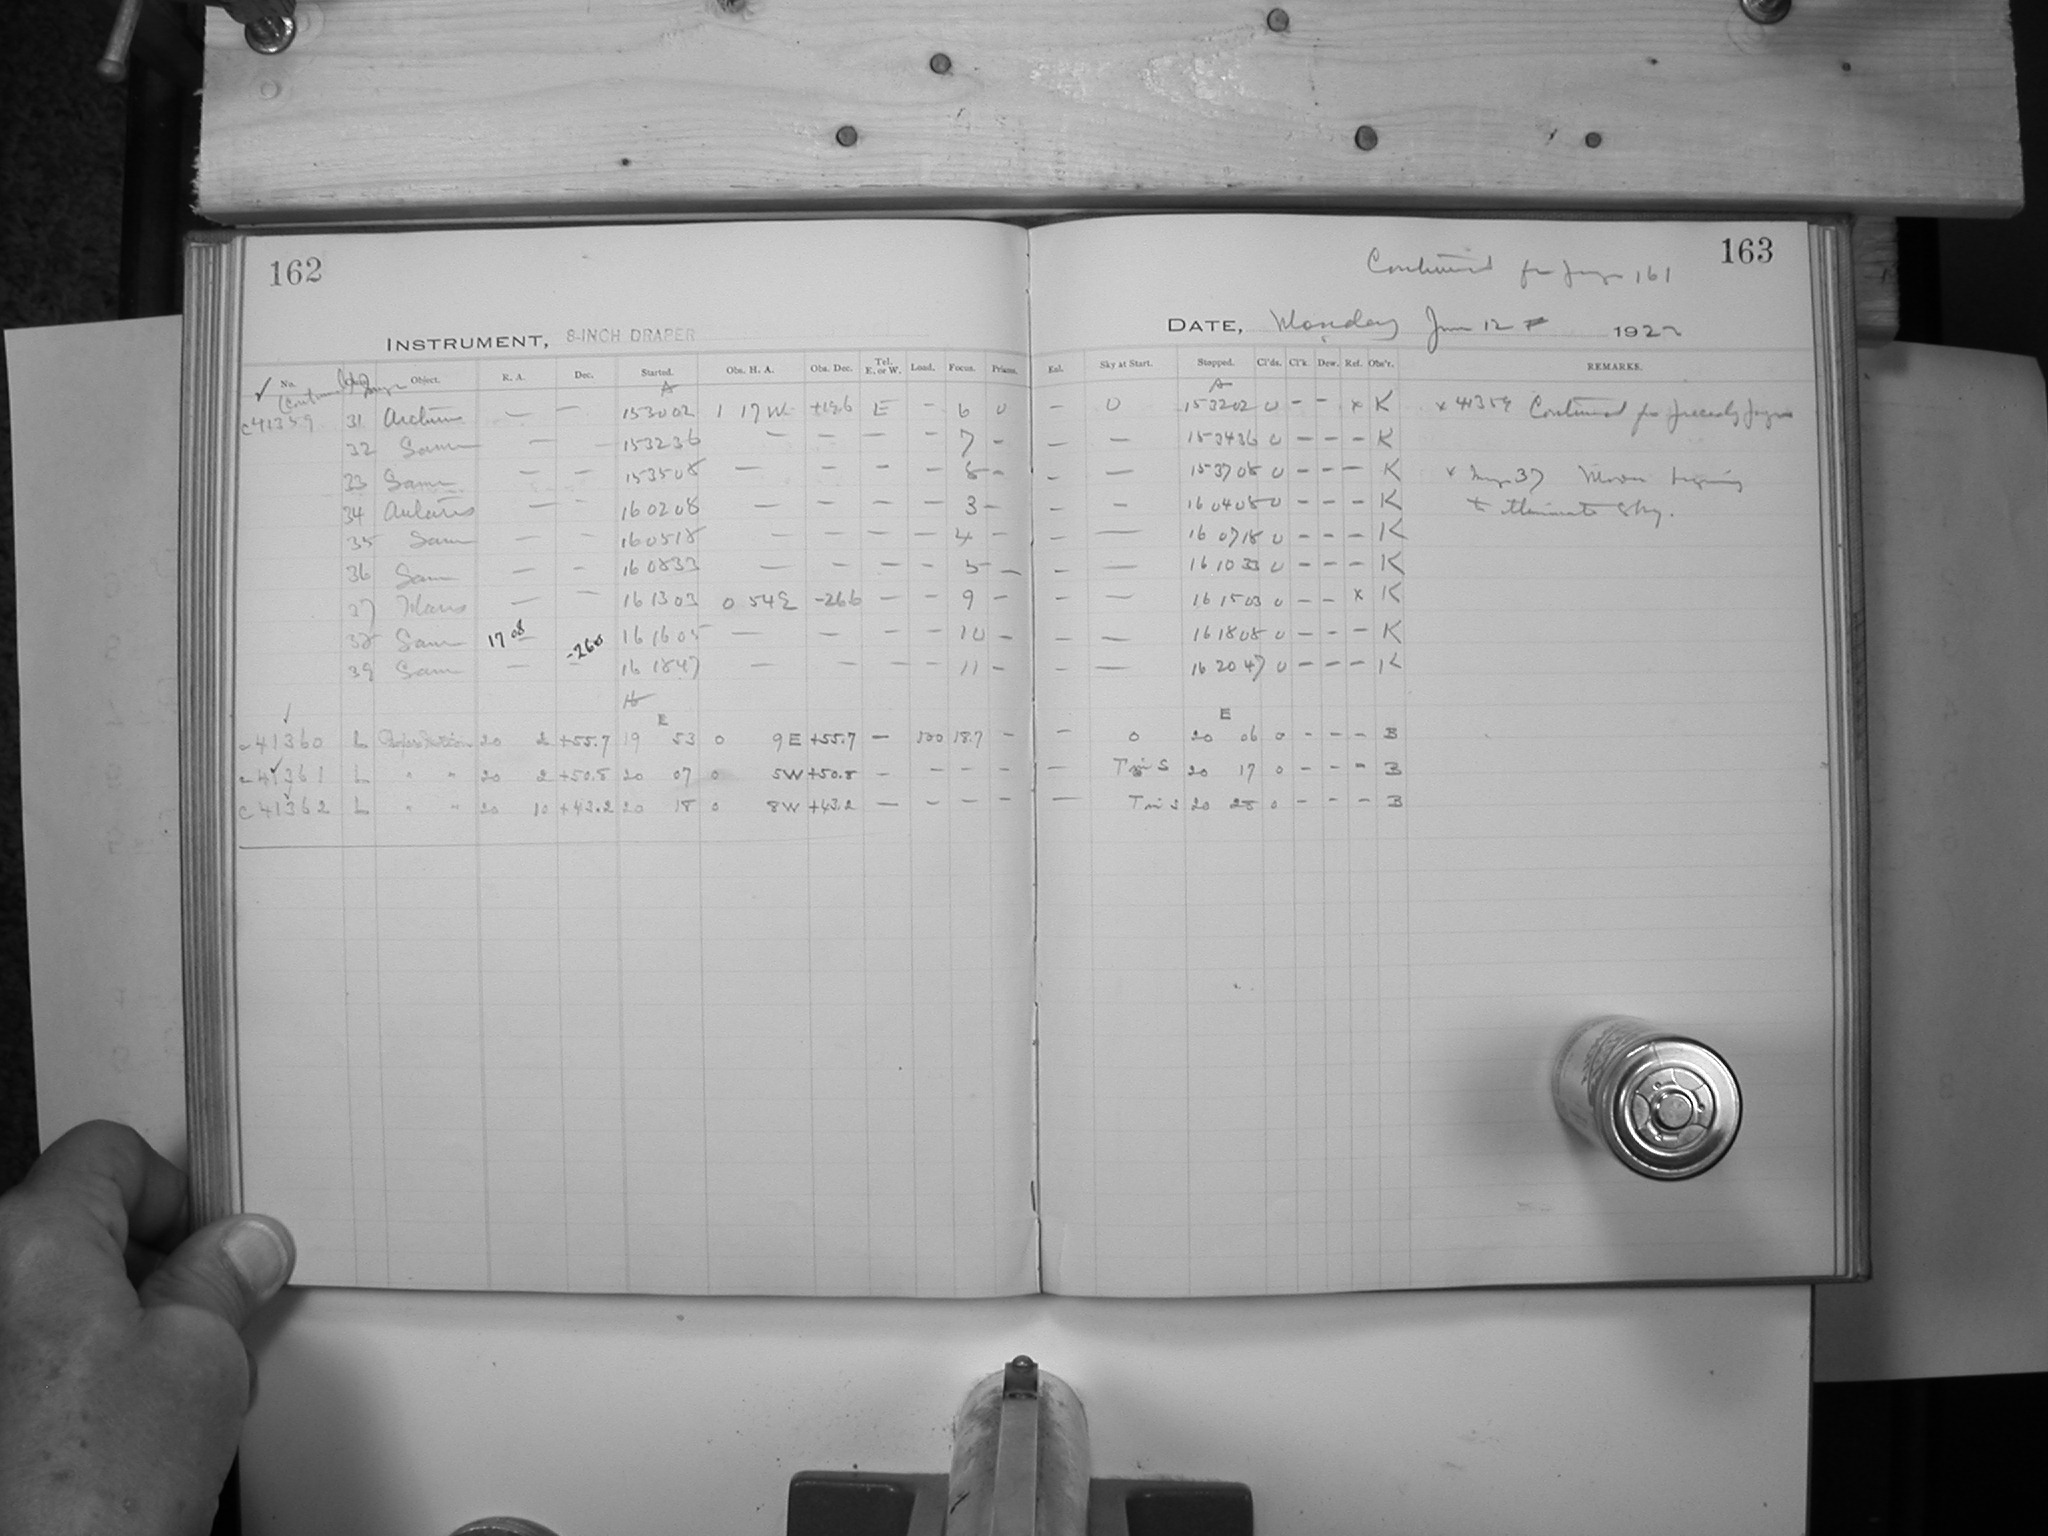 162
163
Continued fr page 161
INSTRUMENT, 8-INCH DRAPER
DATE, Monday June 12 1922
No. Object. R. A. Dec. Started. Obs. H. A. Obs. Dec. Tel. E. or W. Load. Focus. Prisms. Exl. Sky at Start. Stopped. Cl'ds. Cl'k. Dew. Ref. Obs'r. REMARKS.
(Continued)
A A
c41359 31 Arcturus — — 153002 1 17W +196 E — 6 0 — 0 153202 0 — — x K x 41359 Continued fr preceding page
32 Same — — 153236 — — — — 7 — — — 153436 0 — — — K
33 Same — — 153508 — — — — 8 — — — 153708 0 — — — K x Image 37 Moon beginning
34 Antares — — 160208 — — — — 3 — — — 160408 0 — — — K to illuminate sky.
35 Same — — 160518 — — — — 4 — — — 160718 0 — — — K
36 Same — — 160833 — — — — 5 — — — 161033 0 — — — K
37 Mars — — 161303 0 54E -266 — — 9 — — — 161503 0 — — x K
38 Same 17 08 -260 161605 — — — — 10 — — — 161808 0 — — — K
39 Same — — 161847 — — — — 11 — — — 162047 0 — — — K
16
E E
c41360 L 20 2 +55.7 19 53 0 9E +55.7 — 100 18.7 — — 0 20 06 0 - - - B
c41361 L " " 20 2 +50.8 20 07 0 5W +50.8 — — — — — S 20 17 0 - - - B
c41362 L " " 20 10 +43.2 20 18 0 8W +43.2 — — — — — 20 28 0 - - - B